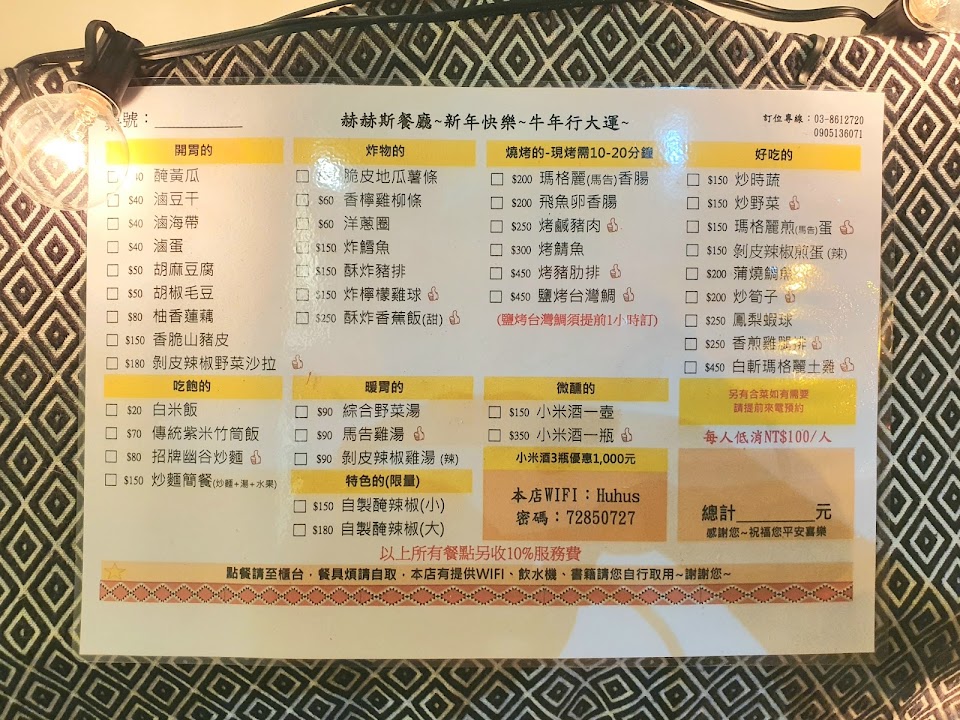 號：
赫赫斯餐廳~新年快樂~牛年行大運~
訂位專線：03-8612720
0905136071
開胃的
醃黃瓜
$40 滷豆干
$40 滷海帶
$40 滷蛋
$50 胡麻豆腐
$50 胡椒毛豆
$80 柚香蓮藕
$150 香脆山豬皮
$180 剝皮辣椒野菜沙拉
炸物的
脆皮地瓜薯條
$60 香檸雞柳條
$60 洋蔥圈
$150 炸鱈魚
$150 酥炸豬排
$150 炸檸檬雞球
$250 酥炸香蕉飯(甜)
燒烤的-現烤需10-20分鐘
$200 瑪格麗(馬告)香腸
$200 飛魚卵香腸
$250 烤鹹豬肉
$300 烤鯖魚
$450 烤豬肋排
$450 鹽烤台灣鯛
(鹽烤台灣鯛須提前1小時訂)
好吃的
$150 炒時蔬
$150 炒野菜
$150 瑪格麗煎(馬告)蛋
$150 剝皮辣椒煎蛋(辣)
$200 蒲燒鯛魚
$200 炒筍子
$250 鳳梨蝦球
$250 香煎雞腿排
$450 白斬瑪格麗土雞
吃飽的
$20 白米飯
$70 傳統紫米竹筒飯
$80 招牌幽谷炒麵
$150 炒麵簡餐(炒麵+湯+水果)
暖胃的
$90 綜合野菜湯
$90 馬告雞湯
$90 剝皮辣椒雞湯(辣)
特色的(限量)
$150 自製醃辣椒(小)
$180 自製醃辣椒(大)
微醺的
$150 小米酒一壺
$350 小米酒一瓶
小米酒3瓶優惠1,000元
本店WIFI：Huhus
密碼：72850727
另有合菜如有需要
請提前來電預約
每人低消NT$100/人
總計________元
感謝您~祝福您平安喜樂
以上所有餐點另收10%服務費
點餐請至櫃台．餐具煩請自取．本店有提供WIFI、飲水機、書籍請您自行取用~謝謝您~